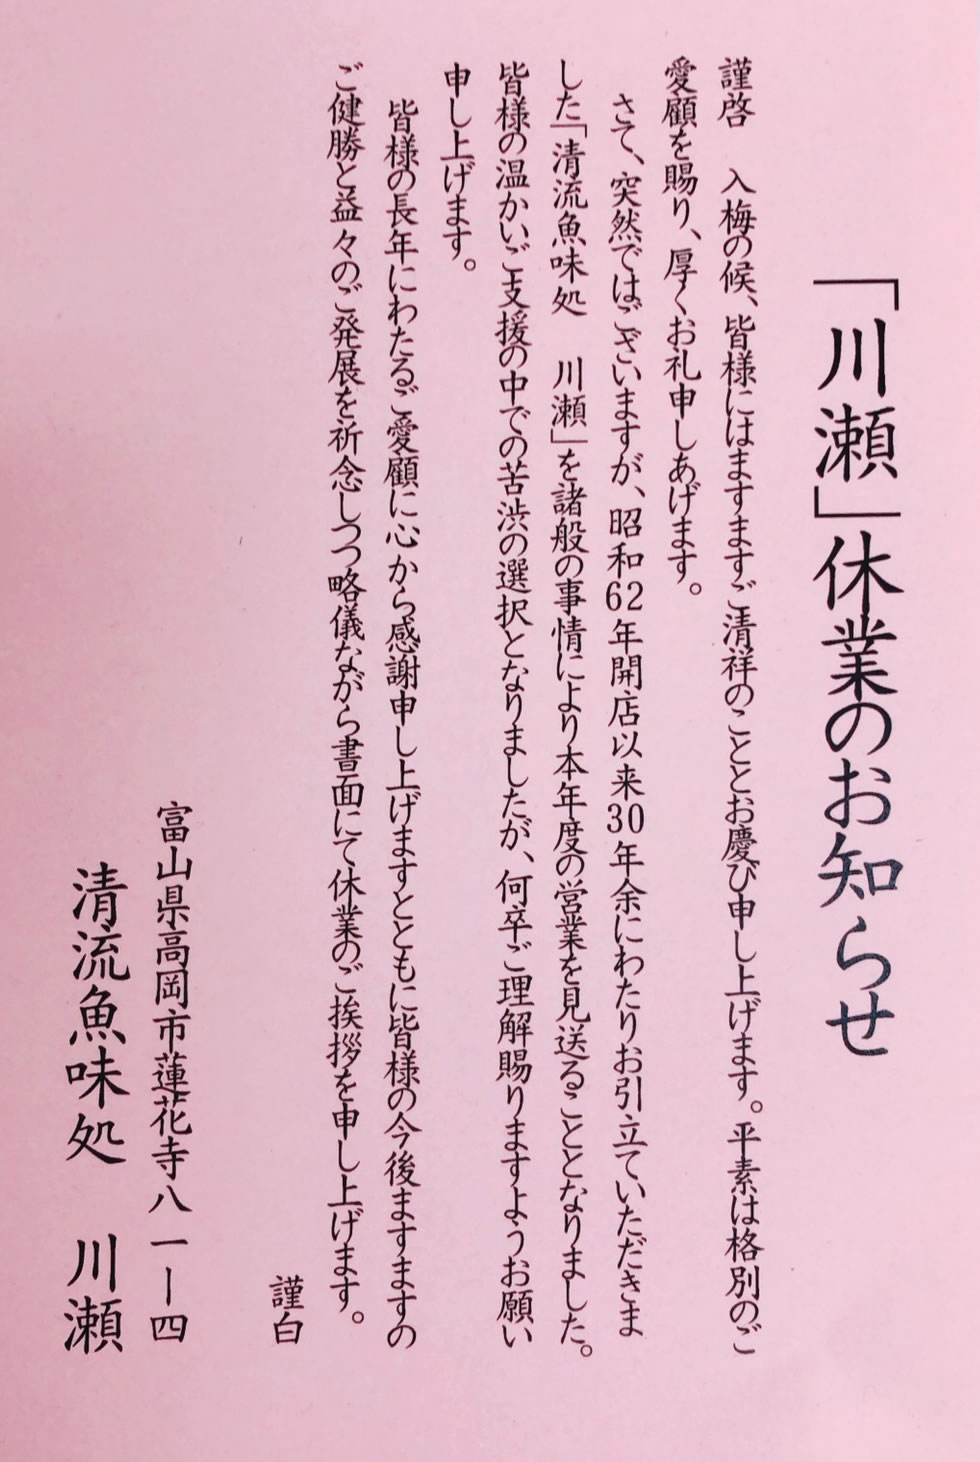 「川瀬」休業のお知らせ
謹啓　入梅の候、皆様にはますますご清祥のこととお慶び申し上げます。平素は格別のご
愛顧を賜り、厚くお礼申しあげます。
さて、突然ではございますが、昭和62年開店以来30年余にわたりお引立ていただきま
した「清流魚味処　川瀬」を諸般の事情により本年度の営業を見送ることとなりました。
皆様の温かいご支援の中での苦渋の選択となりましたが、何卒ご理解賜りますようお願い
申し上げます。
皆様の長年にわたるご愛顧に心から感謝申し上げますとともに皆様の今後ますますの
ご健勝と益々のご発展を祈念しつつ略儀ながら書面にて休業のご挨拶を申し上げます。
謹白
富山県高岡市蓮花寺八一ー四
清流魚味処　川瀬